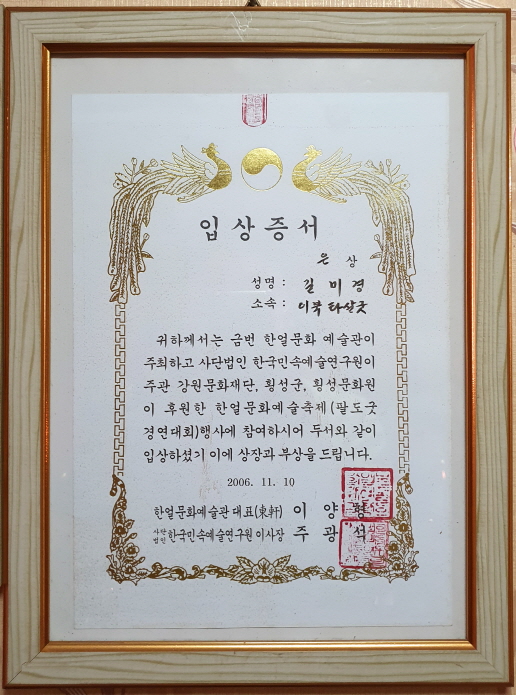 입상증서
은 상
성명 : 길미경
소속 : 이북 타살굿
귀하께서는 금번 한얼문화 예술관이
주최하고 사단법인 한국민속예술연구원이
주관 강원문화재단, 횡성군, 횡성문화원
이 후원한 한얼문화예술축제(팔도굿
경연대회)행사에 참여하시어 두서와 같이
입상하셨기 이에 상장과 부상을 드립니다.
2006. 11. 10
한얼문화예술관 대표(東軒) 이 양 형
사단법인 한국민속예술연구원 이사장 주 광 석